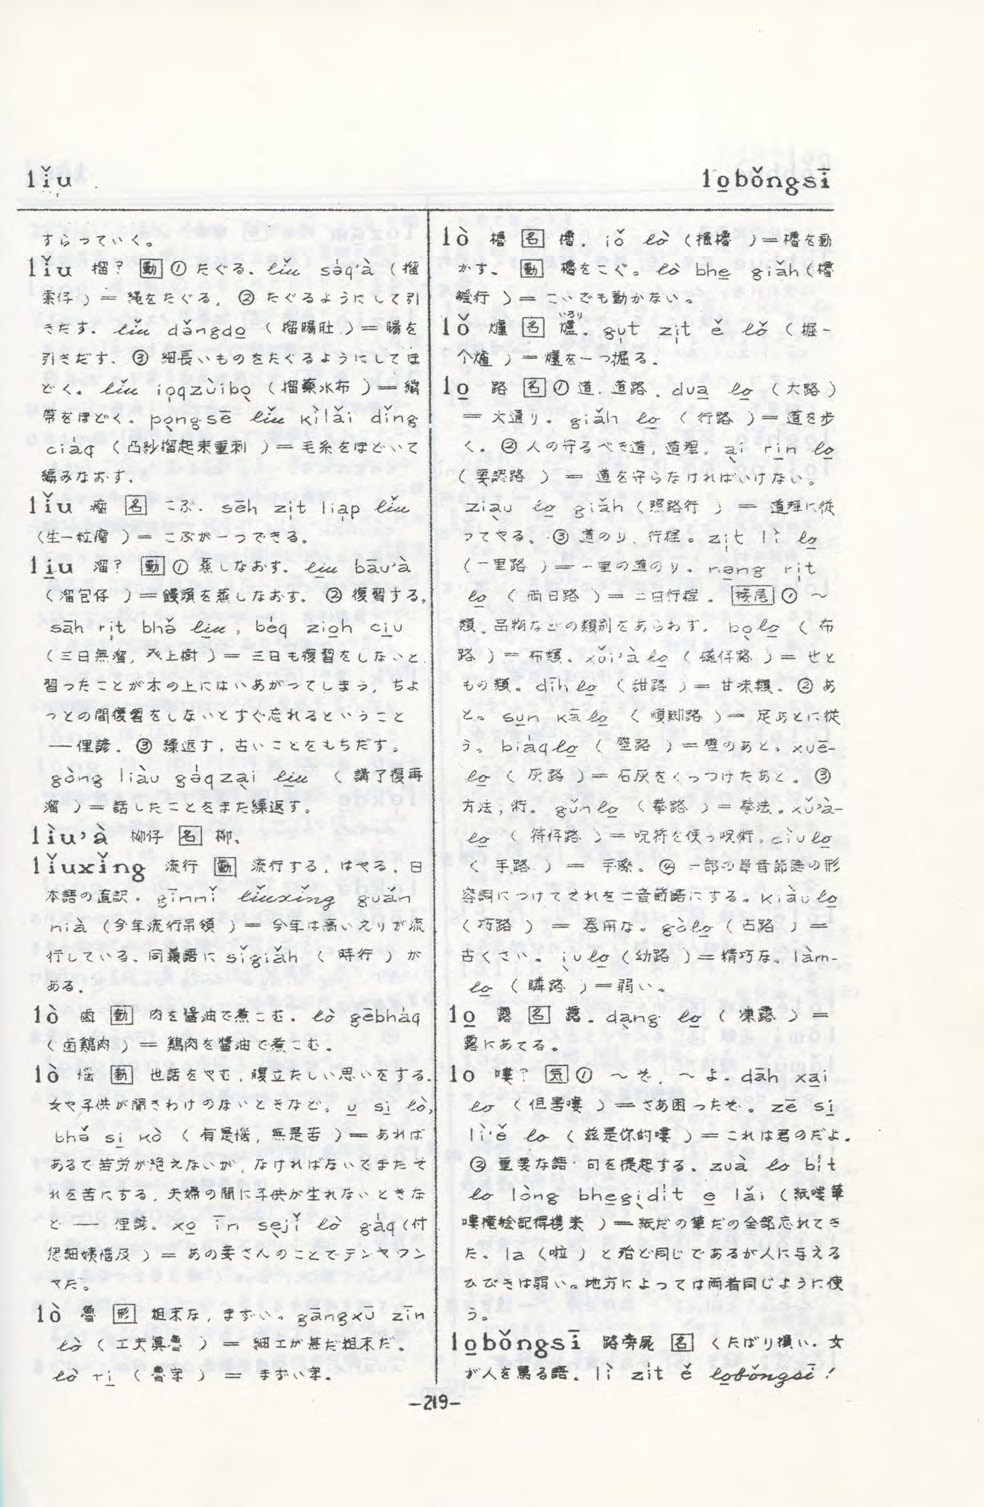 lǐu
lo̱bǒngsī
すらっていく。
lǐu 榴? 動 ① たぐる. lǐu sɔ̀q'à (榴
索仔) = 縄をたぐる, ② たぐるようにして引
きだす. lǐu dn̂gdo (榴腸肚) = 腸を
引きだす. ③ 細長いものをたぐるようにしてほ
どく。 lǐu ioqzùibo (榴藥水布) = 繃
帯をほどく. pongsē lǐu kìlǎi dǐng
ciaq (凸紗榴起来重刺) = 毛糸をほどいて
編みなおす.
lǐu 瘤 名 こぶ. sēh zit liap lǐu
(生一粒瘤) = こぶが一つできる。
li̱u 溜? 動 ① 蒸しなおす. li̱u bāu'à
(溜包仔) = 饅頭を蒸しなおす. ② 復習する,
sāh rit bhǒ li̱u, bêq zioh ciu
(三日無溜, 上樹) = 三日も復習をしないと
習ったことが木の上にはいあがってしまう, ちよ
つとの間復習をしないとすぐ忘れるということ
—俚諺. ③ 繰返す, 古いことをもちだす。
gòng liàu gəqzai li̱u (講了復再
溜) = 話したことをまた繰返す。
lìu'à 柳仔 名 柳.
lǐuxǐng 流行 動 流行する. はやる, 日
本語の直訳. gīnnǐ lǐuxǐng guǎn
nià (今年流行吊領) = 今年は高いえりが流
行している. 同義語に sǐgiǎh (時行) が
ある.
lò 鹵 動 肉を醤油で煮こむ. lò gēbhàq
(鹵鶏肉) = 鶏肉を醤油で煮こむ.
lò 惱 動 世話をやむ, 腹立たしい思いをする.
女や子供が聞きわけのないときなど。 u si lò,
bhǒ si kò (有是惱, 無是苦) = あれば
あるで苦労が絶えないが, なければないでまたそ
れを苦にする, 夫婦の間に子供が生れないときな
ど — 俚諺. xo īn sejǐ lò gàq (付
恁細姨惱及) = あの妾さんのことでテンヤワン
ヤだ。
lò 魯 形 粗末な, まずい. gāngxū zīn
lò (工夫真魯) = 細工が甚だ粗末だ.
lò ri (魯字) = まずい字.
lò 櫓 名 櫓. iǒ lò (搖櫓) = 櫓を動
かす. 動 櫓をこぐ. lò bhe giǎh (櫓
行) = こいでも動かない。
lǒ 爐 名 爐. gut zit ě lǒ (掘一
个爐) = 爐を一つ掘る.
lo̱ 路 名 ① 道. 道路. dua lo̱ (大路)
= 大通り. giǎh lo̱ (行路) = 道を歩
く. ② 人の守るべき道, 道理. ai rin lo̱
(要認路) = 道を守らなければいけない。
ziau lo̱ giǎh (照路行) = 道理に従
ってやる. ③ 道のり. 行程。 zit lì lo̱
(一里路) = 一里の道のり. nəng rit
lo̱ (両日路) = 二日行程. 接尾 ① ~
類. 品物などの類別をあらわす. bòlo̱ (布
路) = 布類. xǔi'à lo̱ (磁仔路) = せと
もの類. dīhlo̱ (甜路) = 甘味類. ② あ
と。 sun kālo̱ (順脚路) = 足あとに従
う. biàqlo̱ (壁路) = 壁のあと. xuē-
lo̱ (灰路) = 石灰をくっつけたあと。 ③
方法, 術. gǔnlo̱ (拳路) = 拳法. xǔ'à-
lo̱ (符仔路) = 呪符を使う呪術. cǐulo̱
(手路) = 手際. ④ 一部の単音節語の形
容詞につけてそれを二音節語にする。 kiàulo̱
(巧路) = 器用な. gòlo̱ (古路) =
古くさい. iulo̱ (幼路) = 精巧な. làm-
lo̱ (路) = 弱い。
lo̱ 露 名 露. dang lo̱ (凍露) =
露にあてる.
lo 嘍? 気 ① ~ぞ, ~よ. dāh xai
lo (但害嘍) = さあ困ったぞ. zē si
lì'ě lo (茲是你的嘍) = これは君のだよ.
② 重要な語・句を提起する. zuà lo bit
lo lòng bhegidit e lǎi (紙嘍筆
嘍攏 記得携来) = 紙だの筆だの全部忘れてき
た. la (啦) と殆ど同じであるが人に与える
ひびきは弱い。地方によっては両者同じように使
う。
lo̱bǒngsī 路旁屍 名 くたばり損い. 女
が人を罵る語. lì zit ě lo̱bǒngsī!
—219—